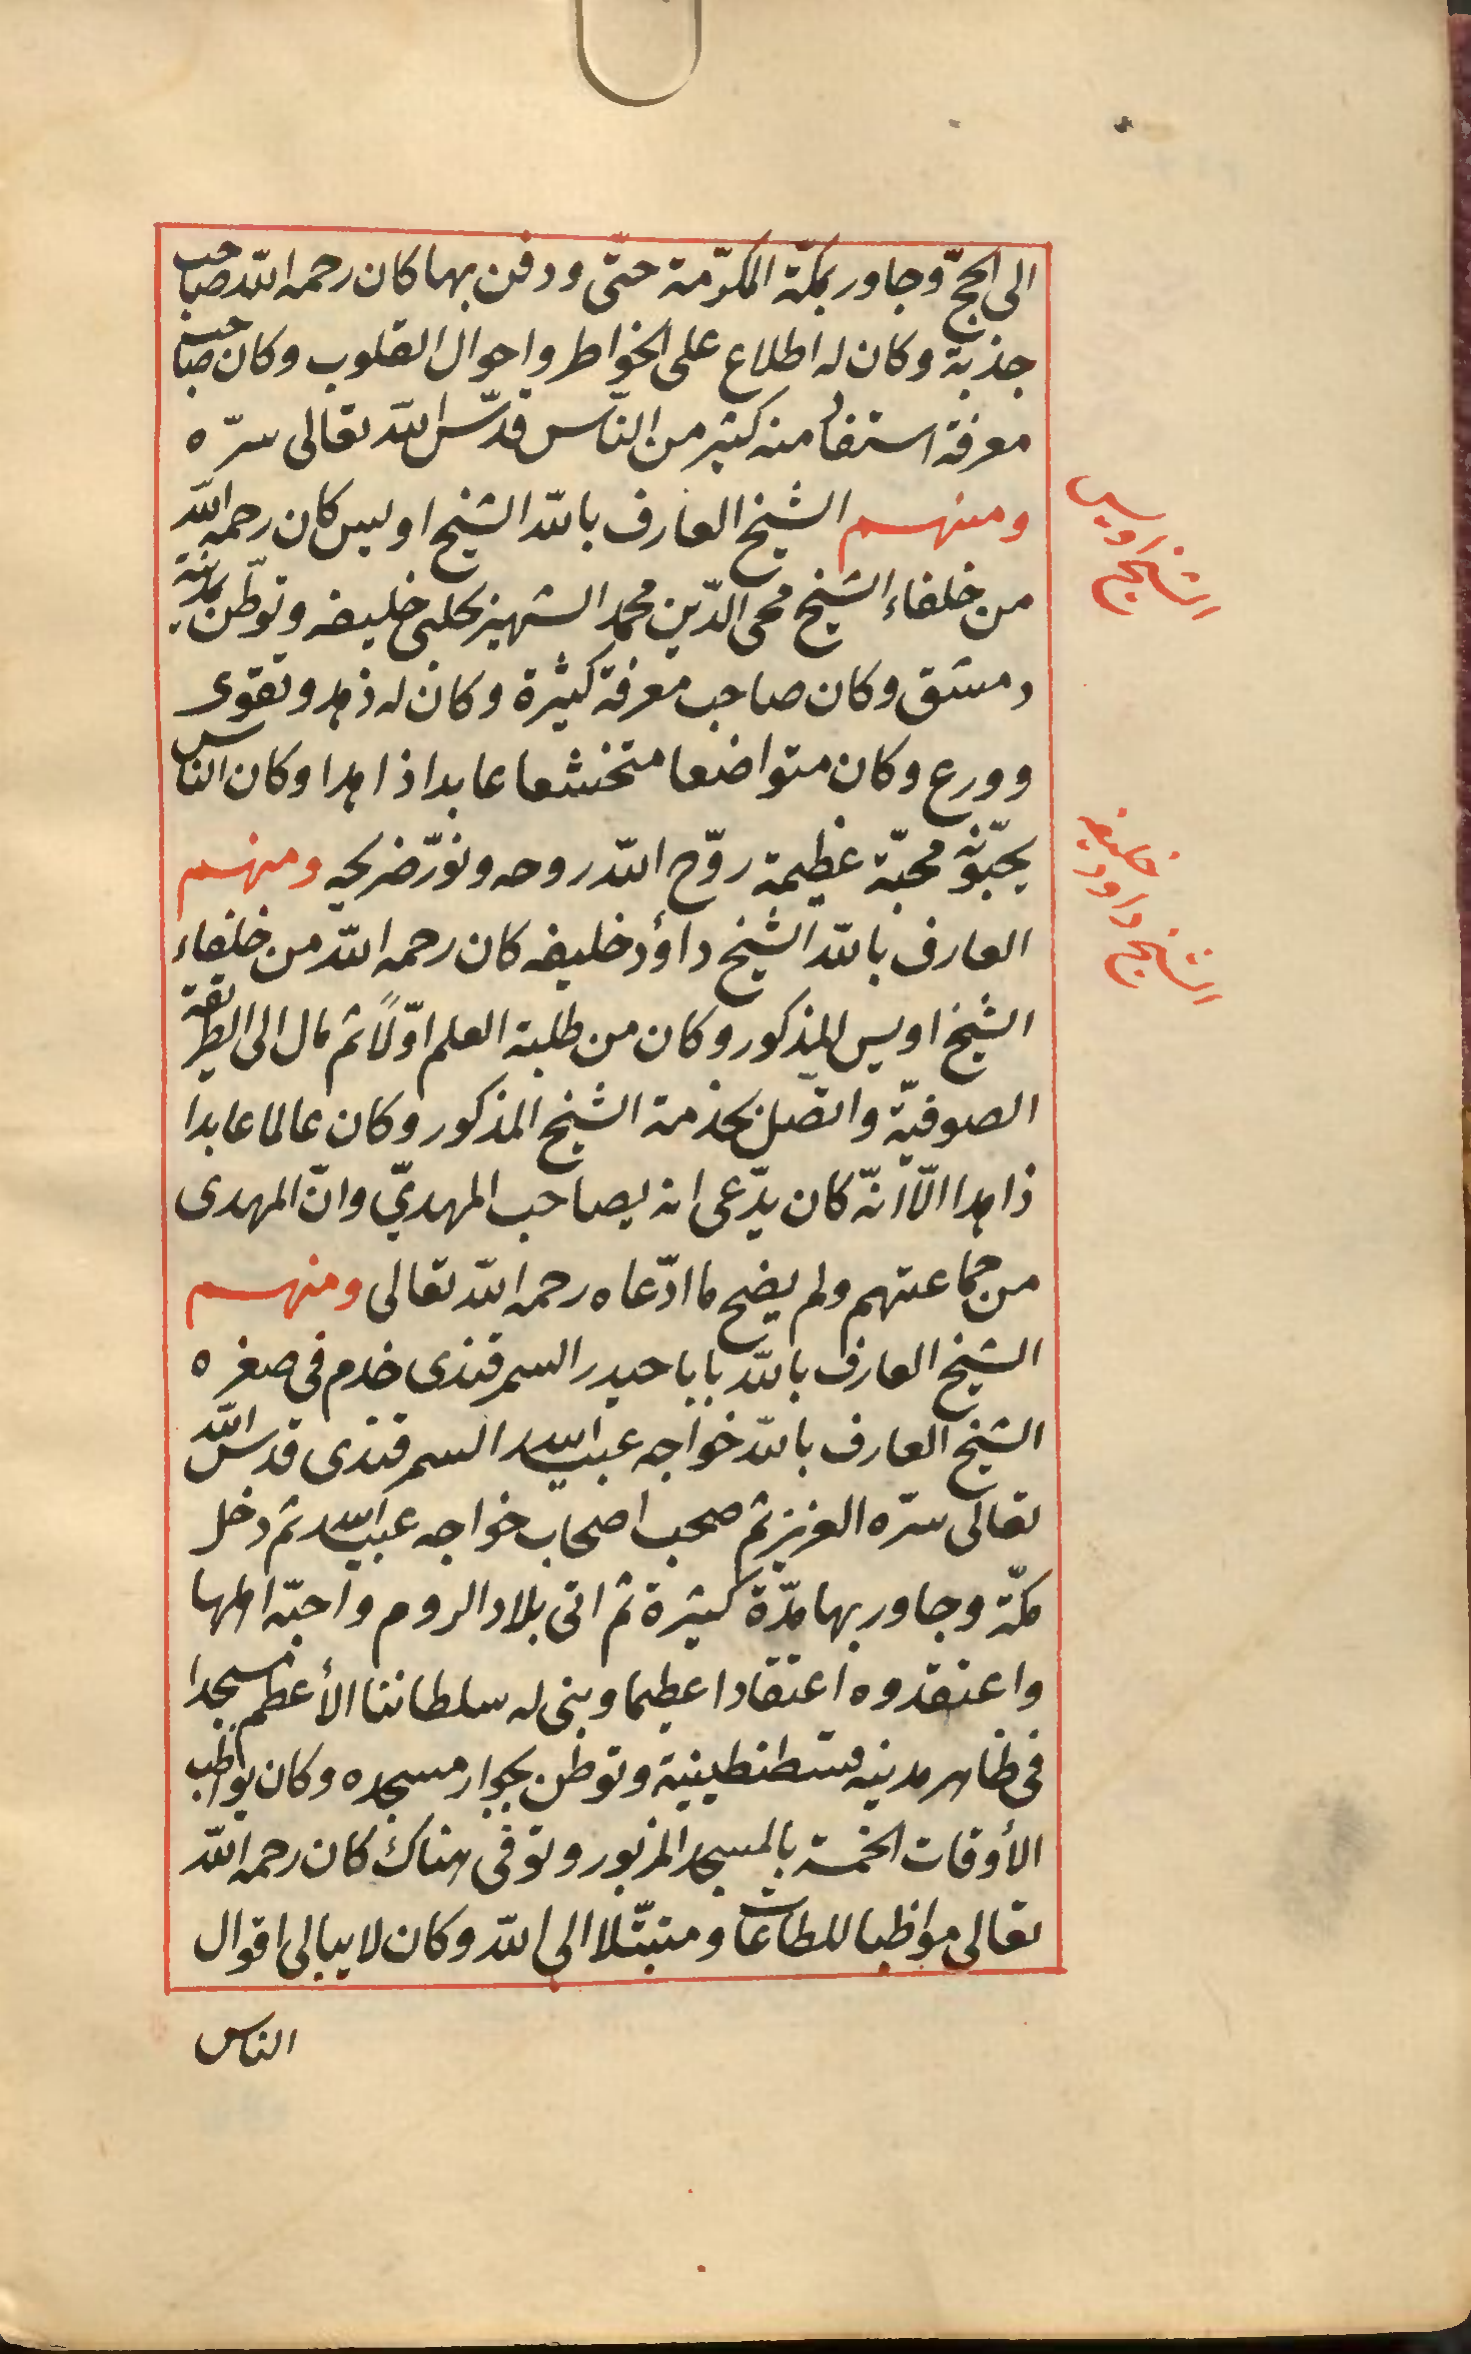 الى الحجّ وجاور بمكّة المكرّمة حتى ودفن بها كان رحمه اللّه صاحب
جذبة وكان له اطلاع على الخواطر واحوال القلوب وكان صاحب
معرفة استفاد منه كثير من النّاس قدّس اللّه تعالى سرّه
ومنهم الشيخ العارف باللّه الشيخ اويس كان رحمه اللّه
الشيخ اويس
من خلفاء الشيخ محى الدّين محمد الشهير بحلبى خليفه وتوطّن بمدينة
دمشق وكان صاحب معرفة كثيرة وكان له ذهد وتقوى
وورع وكان متواضعا متخشعا عابدا ذاهدا وكان الناس
يحبّونه محبّة عظيمة روّح اللّه روحه ونوّر ضريحه ومنهم
الشيخ داود خليفه
العارف باللّه الشيخ داؤد خليفه كان رحمه اللّه من خلفاء
الشيخ اويس المذكور وكان من طلبة العلم اوّلاً ثم مال الى الطريقة
الصوفيّة واتّصل بخذمة الشيخ المذكور وكان عالما عابدا
ذاهدا الّا انّه كان يدّعى انه يصاحب المهديّ وانّ المهدى
من جماعتهم ولم يضح ما ادّعاه رحمه اللّه تعالى ومنهم
الشيخ العارف باللّه بابا حيدر السمرقندى خدم فى صغره
الشيخ العارف باللّه خواجه عبيد اللّه السمرقندى قدس اللّه
تعالى سرّه العزيز ثم صحب اصحاب خواجه عبيد اللّه ثم دخل
مكّة وجاور بها مدّة كثيرة ثم اتى بلاد الروم واحبّه اهلها
واعتقدوه اعتقادا عظيما وبنى له سلطاننا الأعظم مسجدا
فى ظاهر مدينه قسطنطينية وتوطن بجوار مسجده وكان يواظب
الأوقات الخمسة بالمسجد المزبور وتوفى هناك كان رحمه اللّه
تعالى مواظبا للطاعات ومتبتّلا الى اللّه وكان لا يبالى اقوال
الناس